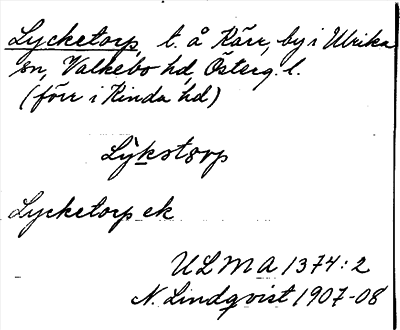 Lycketorp, t. å Kärr, by i Ulrika
sn, Valkebo hd, Österg. l.
(förr i Kinda hd)
Lỳkstorp
Lycketorp ek
ULMA 1374:2
N. Lindqvist 1907-08